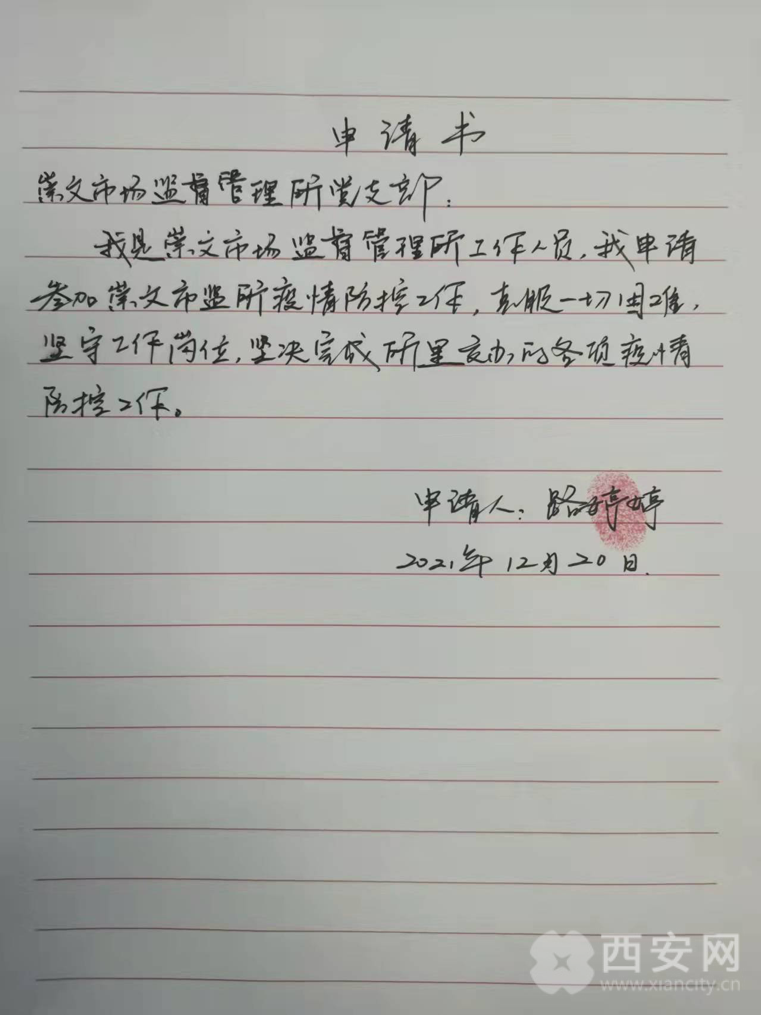 申请书
崇文市场监督管理所党支部：
我是崇文市场监督管理所工作人员，我申请
参加崇文市监所疫情防控工作，克服一切困难，
坚守工作岗位，坚决完成所里交办的各项疫情
防控工作。
申请人：路婷婷
2021年12月20日.
西安网
www.xiancity.cn